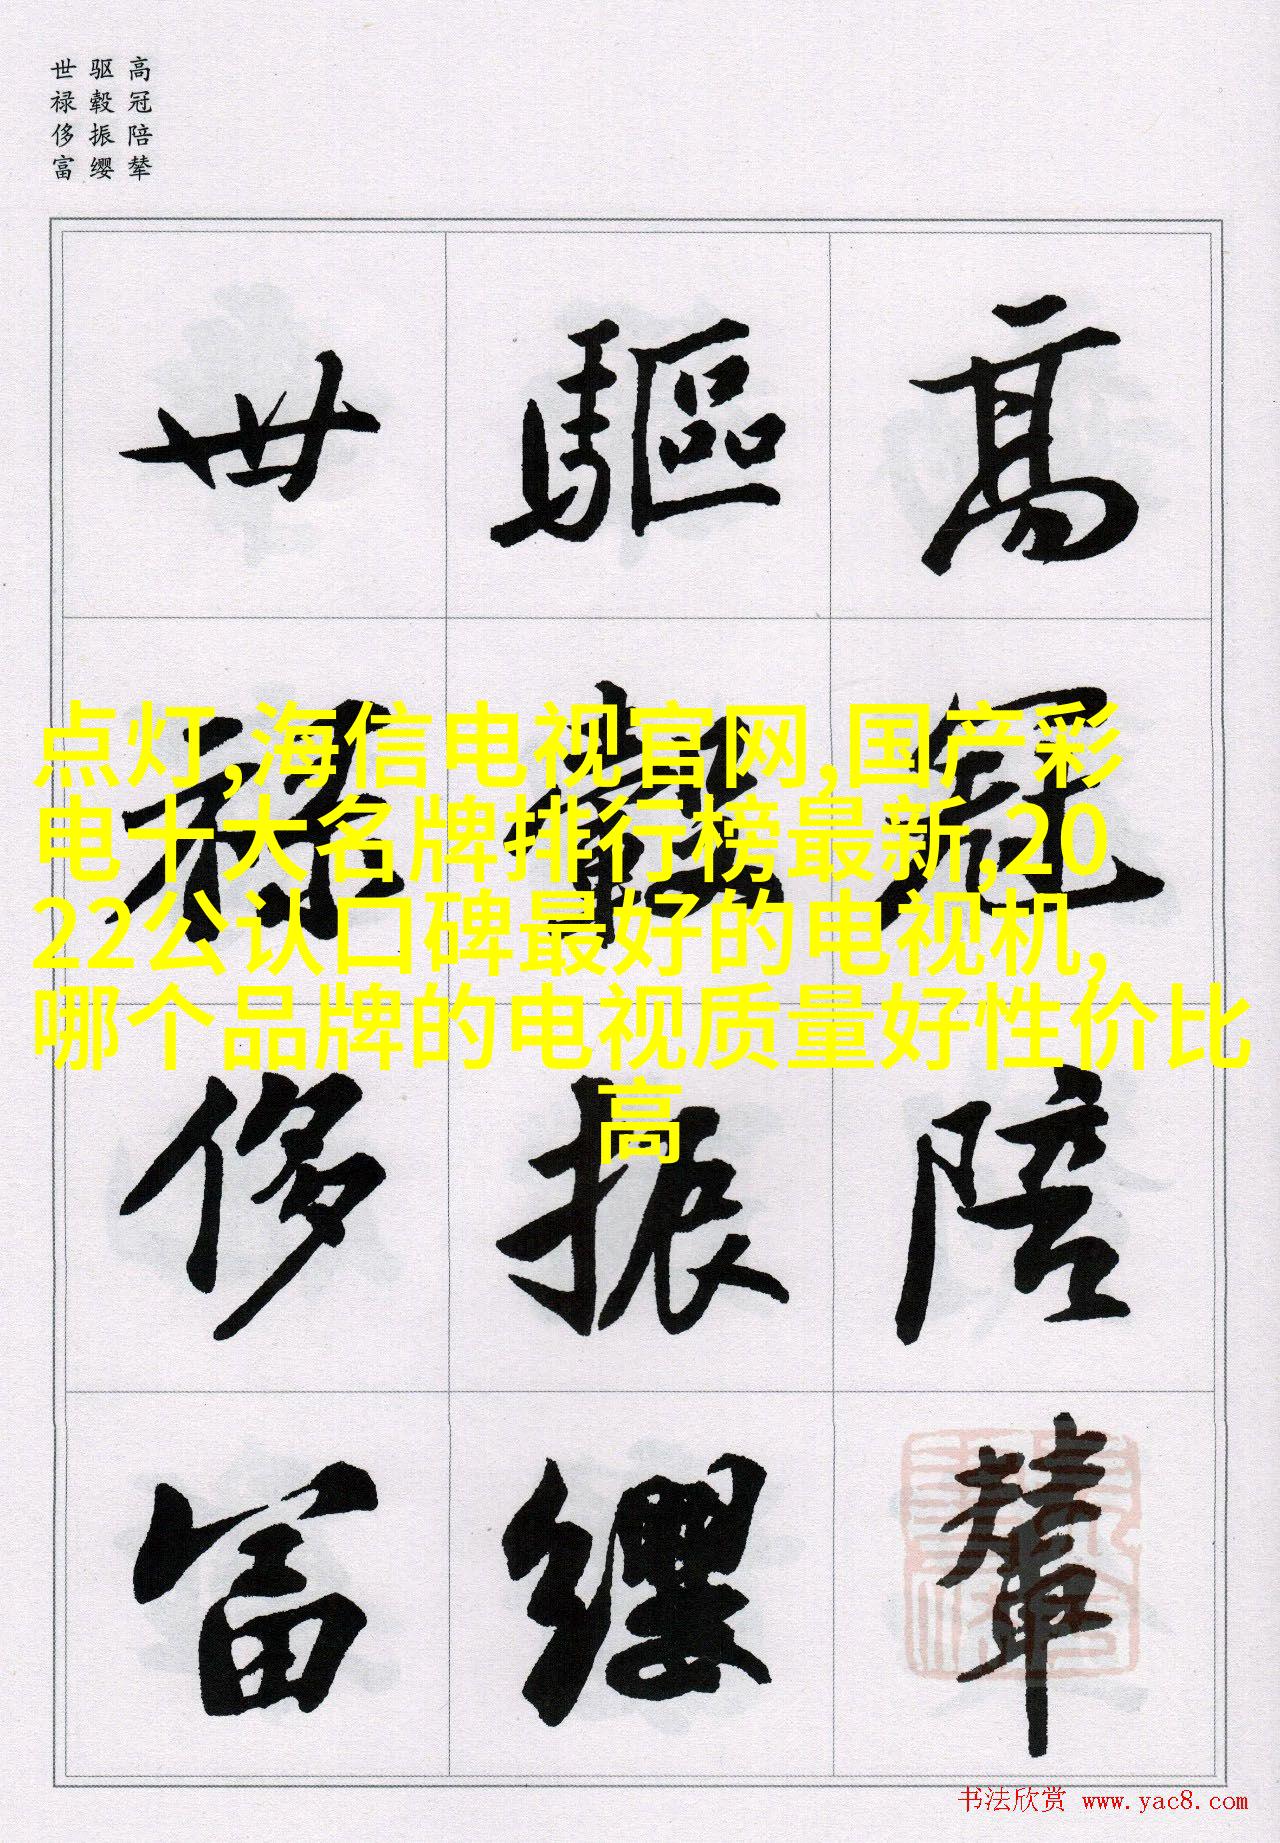 高冠陪辇
驱毂振缨
世禄侈富
高冠陪輦
驅轂振纓
世禄侈富
点灯,海信电视官网,国产彩
电十大名牌排行榜最新,20
22公认口碑最好的电视机,
哪个品牌的电视质量好性价比
高
书法欣赏 www.yac8.com